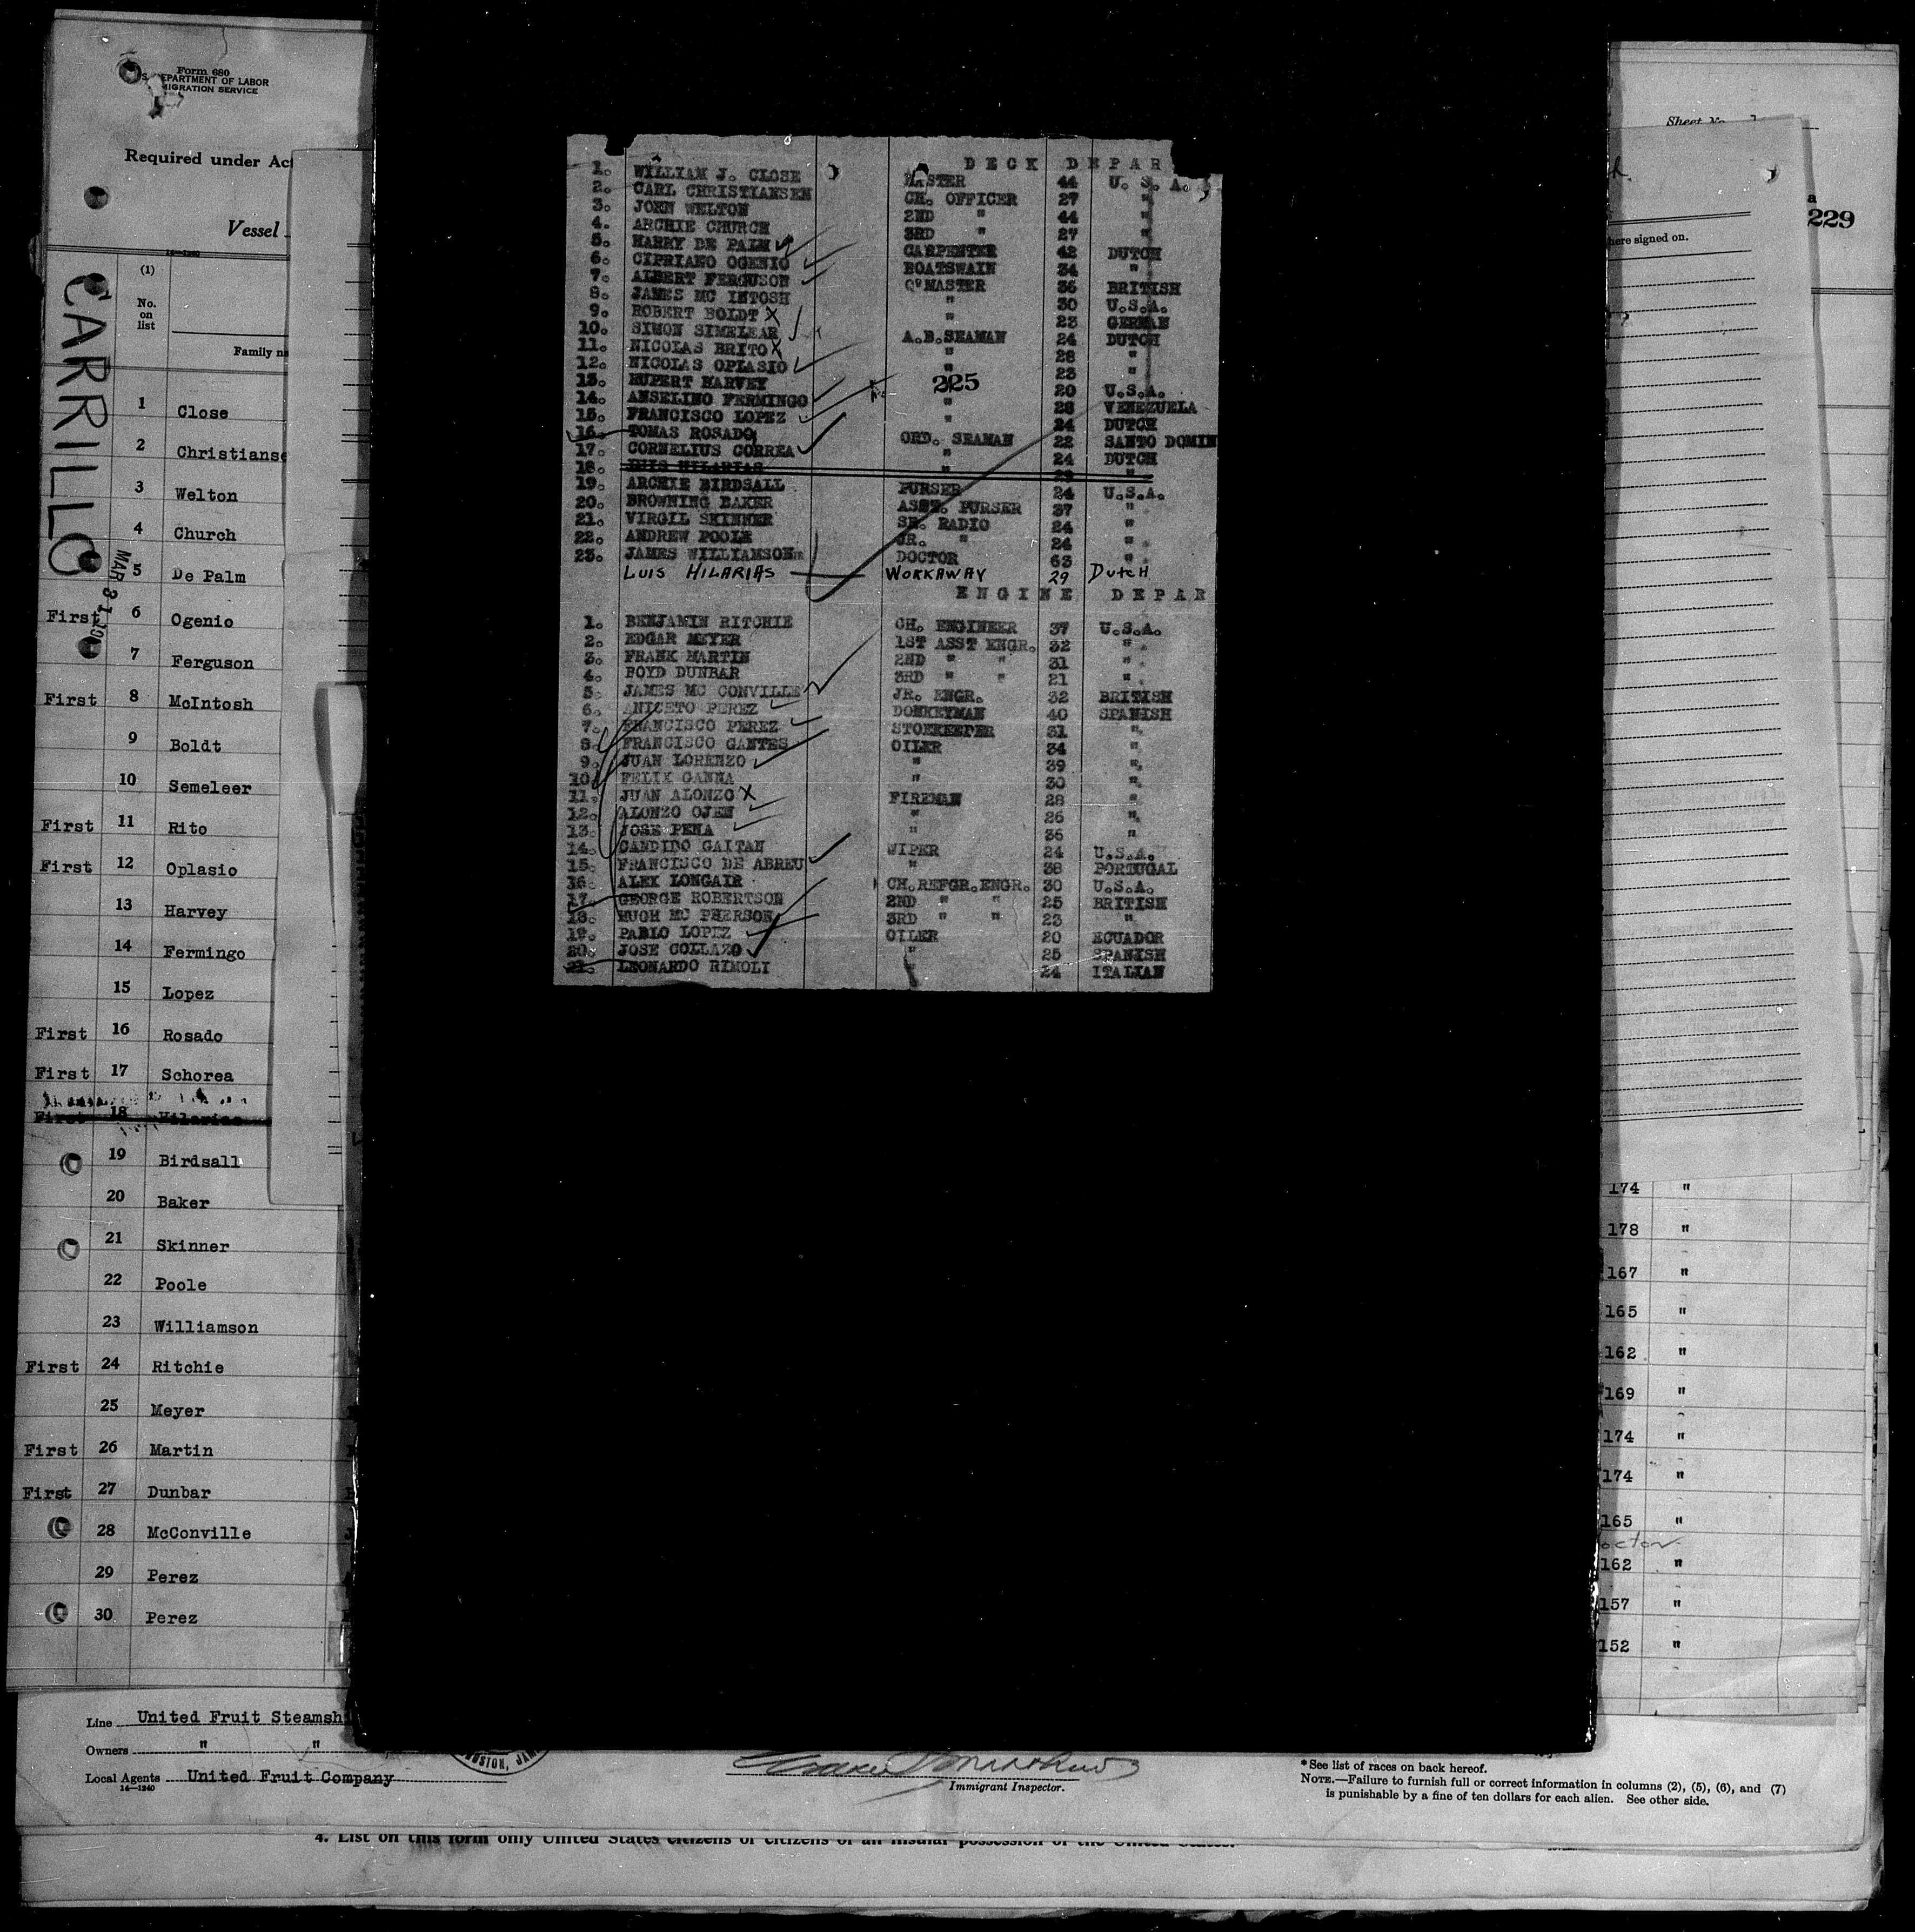 Form 680
DEPARTMENT OF LABOR
MIGRATION SERVICE
Required under Act
Vessel
14-1240
CARRILLO
MAR 31 19
(1)
No. on list
Family na
1 Close
2 Christianse
3 Welton
4 Church
5 De Palm
First 6 Ogenio
7 Ferguson
First 8 McIntosh
9 Boldt
10 Semeleer
First 11 Rito
First 12 Oplasio
13 Harvey
14 Fermingo
15 Lopez
First 16 Rosado
First 17 Schorea
First 18 Hilarias
19 Birdsall
20 Baker
21 Skinner
22 Poole
23 Williamson
First 24 Ritchie
25 Meyer
First 26 Martin
First 27 Dunbar
28 McConville
29 Perez
30 Perez
Line United Fruit Steamsh
Owners " "
Local Agents United Fruit Company
14-1240
DECK DEPAR
1. WILLIAM J. CLOSE MASTER 44 U. S. A.
2. CARL CHRISTIANSEN CH. OFFICER 27 "
3. JOHN WELTON 2ND " 44 "
4. ARCHIE CHURCH 3RD " 27 "
5. HARRY DE PALM CARPENTER 42 DUTCH
6. CIPRIANO OGENIO BOATSWAIN 34 "
7. ALBERT FERGUSON Q'MASTER 36 BRITISH
8. JAMES MC INTOSH " 30 U.S.A.
9. ROBERT BOLDT X " 23 GERMAN
10. SIMON SIMELEAR A.B.SEAMAN 24 DUTCH
11. NICOLAS BRITO X " 28 "
12. NICOLAS OPLASIO " 23 "
13. RUPERT HARVEY 225 20 U.S.A.
14. ANSELINO FERMINGO " 28 VENEZUELA
15. FRANCISCO LOPEZ " 24 DUTCH
16. TOMAS ROSADO ORD. SEAMAN 22 SANTO DOMIN
17. CORNELIUS CORREA " 24 DUTCH
18. LUIS HILARIAS " 29 "
19. ARCHIE BIRDSALL PURSER 24 U.S.A.
20. BROWNING BAKER ASST. PURSER 37 "
21. VIRGIL SKINNER SR. RADIO 24 "
22. ANDREW POOLE JR. " 24 "
23. JAMES WILLIAMSON DOCTOR 63 "
LUIS HILARIAS WORKAWAY 29 DUTCH
ENGINE DEPAR
1. BENJAMIN RITCHIE CH. ENGINEER 37 U.S.A.
2. EDGAR MEYER 1ST ASST ENGR. 32 "
3. FRANK MARTIN 2ND " " 31 "
4. BOYD DUNBAR 3RD " " 21 "
5. JAMES MC CONVILLE JR. ENGR. 32 BRITISH
6. ANICETO PEREZ DONKEYMAN 40 SPANISH
7. FRANCISCO PEREZ STOREKEEPER 31 "
8. FRANCISCO GANTES OILER 34 "
9. JUAN LORENZO " 39 "
10. FELIX GANNA " 30 "
11. JUAN ALONZO X FIREMAN 28 "
12. ALONZO OJEN " 26 "
13. JOSE PENA " 36 "
14. CANDIDO GAITAN WIPER 24 U.S.A.
15. FRANCISCO DE ABREU " 38 PORTUGAL
16. ALEX LONGAIR CH.REFGR.ENGR. 30 U.S.A.
17. GEORGE ROBERTSON 2ND " " 25 BRITISH
18. HUGH MC PHERSON 3RD " " 23 "
19. PABLO LOPEZ OILER 20 ECUADOR
20. JOSE COLLAZO " 25 SPANISH
21. LEONARDO RIMOLI " 24 ITALIAN
Sheet No.
229
here signed on.
174 "
178 "
167 "
165 "
162 "
169 "
174 "
174 "
165 "
octor
162 "
157 "
152 "
Immigrant Inspector.
* See list of races on back hereof.
NOTE.—Failure to furnish full or correct information in columns (2), (5), (6), and (7)
is punishable by a fine of ten dollars for each alien. See other side.
4. List on this form only United States citizens or citizens of an insular possession of the United States.